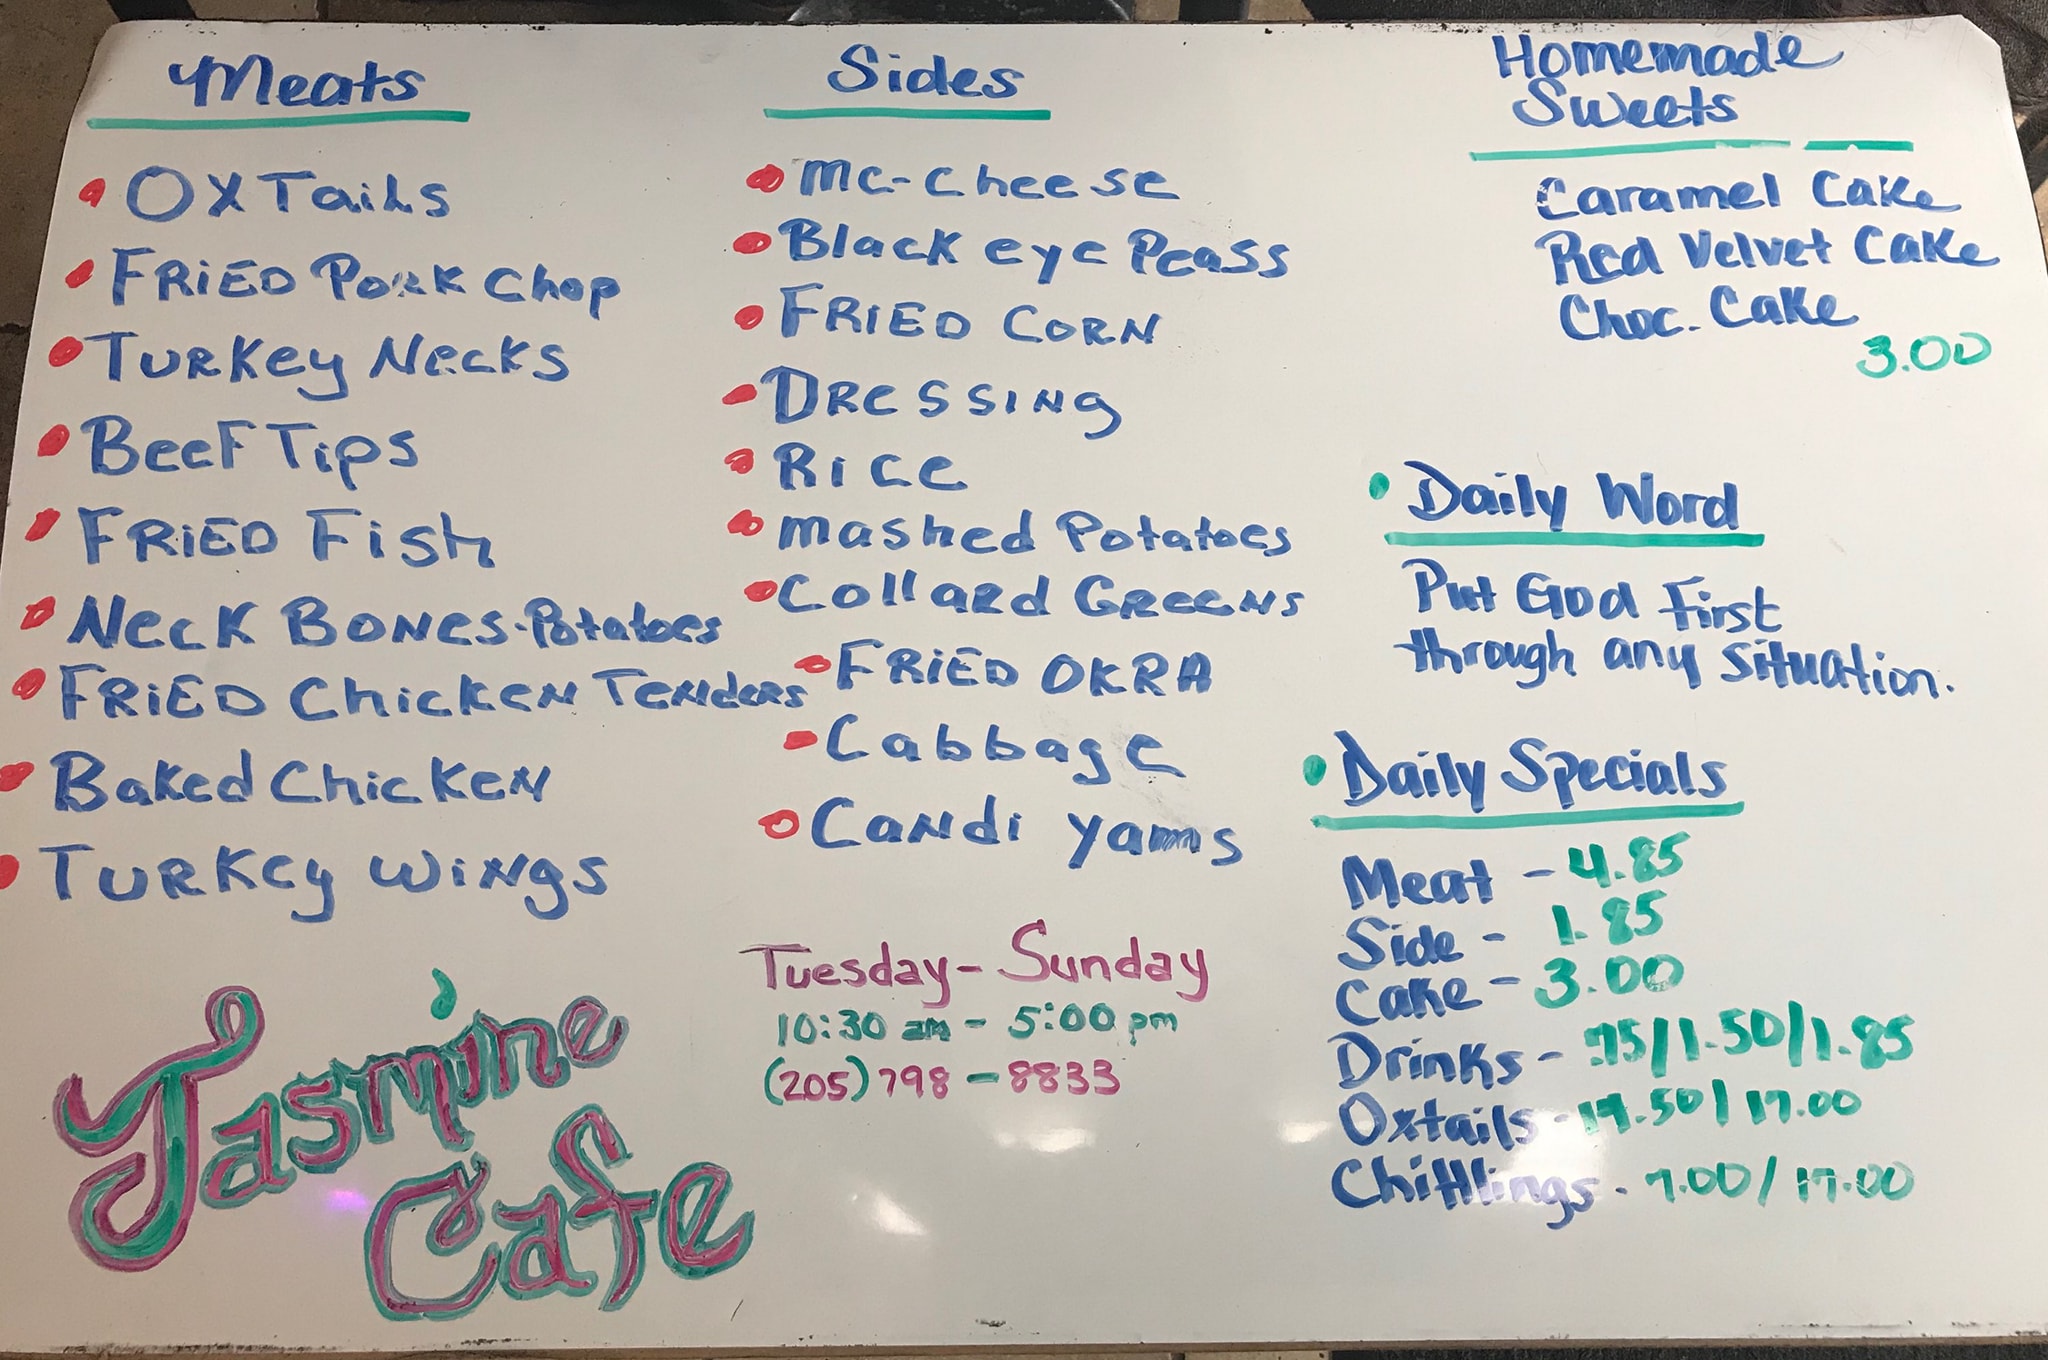 Meats
OxTails
FRiED Pork Chop
TURKey Necks
BeeF Tips
FRiED Fish
Neck BONes-Potatoes
FRiED ChickeN TeNders
Baked ChickeN
TURKey WiNgs
Jasmine
Cafe
Sides
Mc-Cheese
Black eye Peass
FRiED CORN
DRessiNg
Rice
mashed Potatoes
Collard GReeNs
FRiED OKRA
Cabbage
CaNdi yams
Tuesday - Sunday
10:30 am - 5:00 pm
(205) 798-8833
Homemade
Sweets
Caramel Cake
Red Velvet Cake
Choc. Cake
3.00
Daily Word
Put God First
through any situation.
Daily Specials
Meat - 4.85
Side - 1.85
Cake - 3.00
Drinks - .75/1.50/1.85
Oxtails - .50/17.00
Chittlings - 9.00/17.00